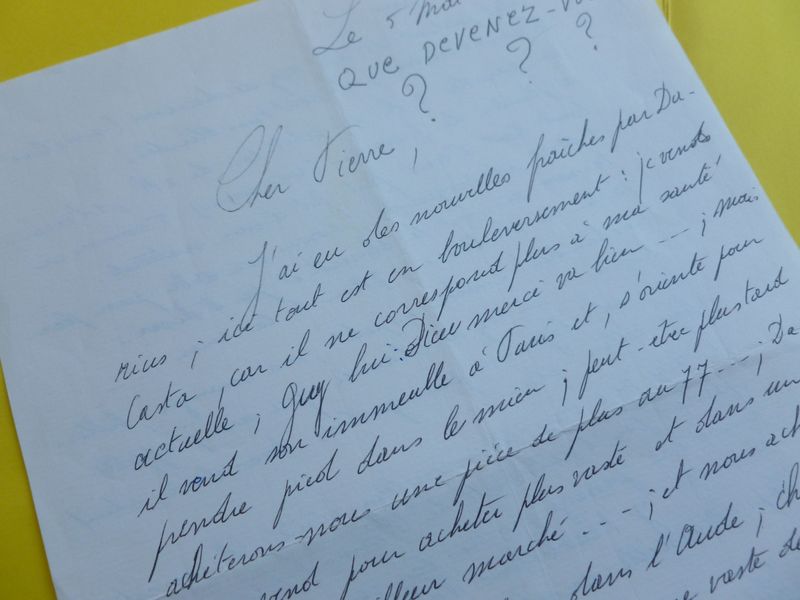 Le 5 Mai
QUE DEVENEZ-VO
? ? ?
Cher Pierre,
J'ai eu des nouvelles fraîches par Da-
rius ; ici tout est en bouleversement : je vends
Casta, car il ne correspond plus à ma santé
actuelle ; Guy lui : Dieu merci va bien --- ; mais
il vend son immeuble à Paris et, s'oriente pour
prendre pied dans le mien ; peut-être plus tard
achèterons-nous une pièce de plus au 77 --- ; Da
vend pour acheter plus vaste et dans un
illeur marché --- ; et nous ach
dans l'Aude ; ch
vaste de